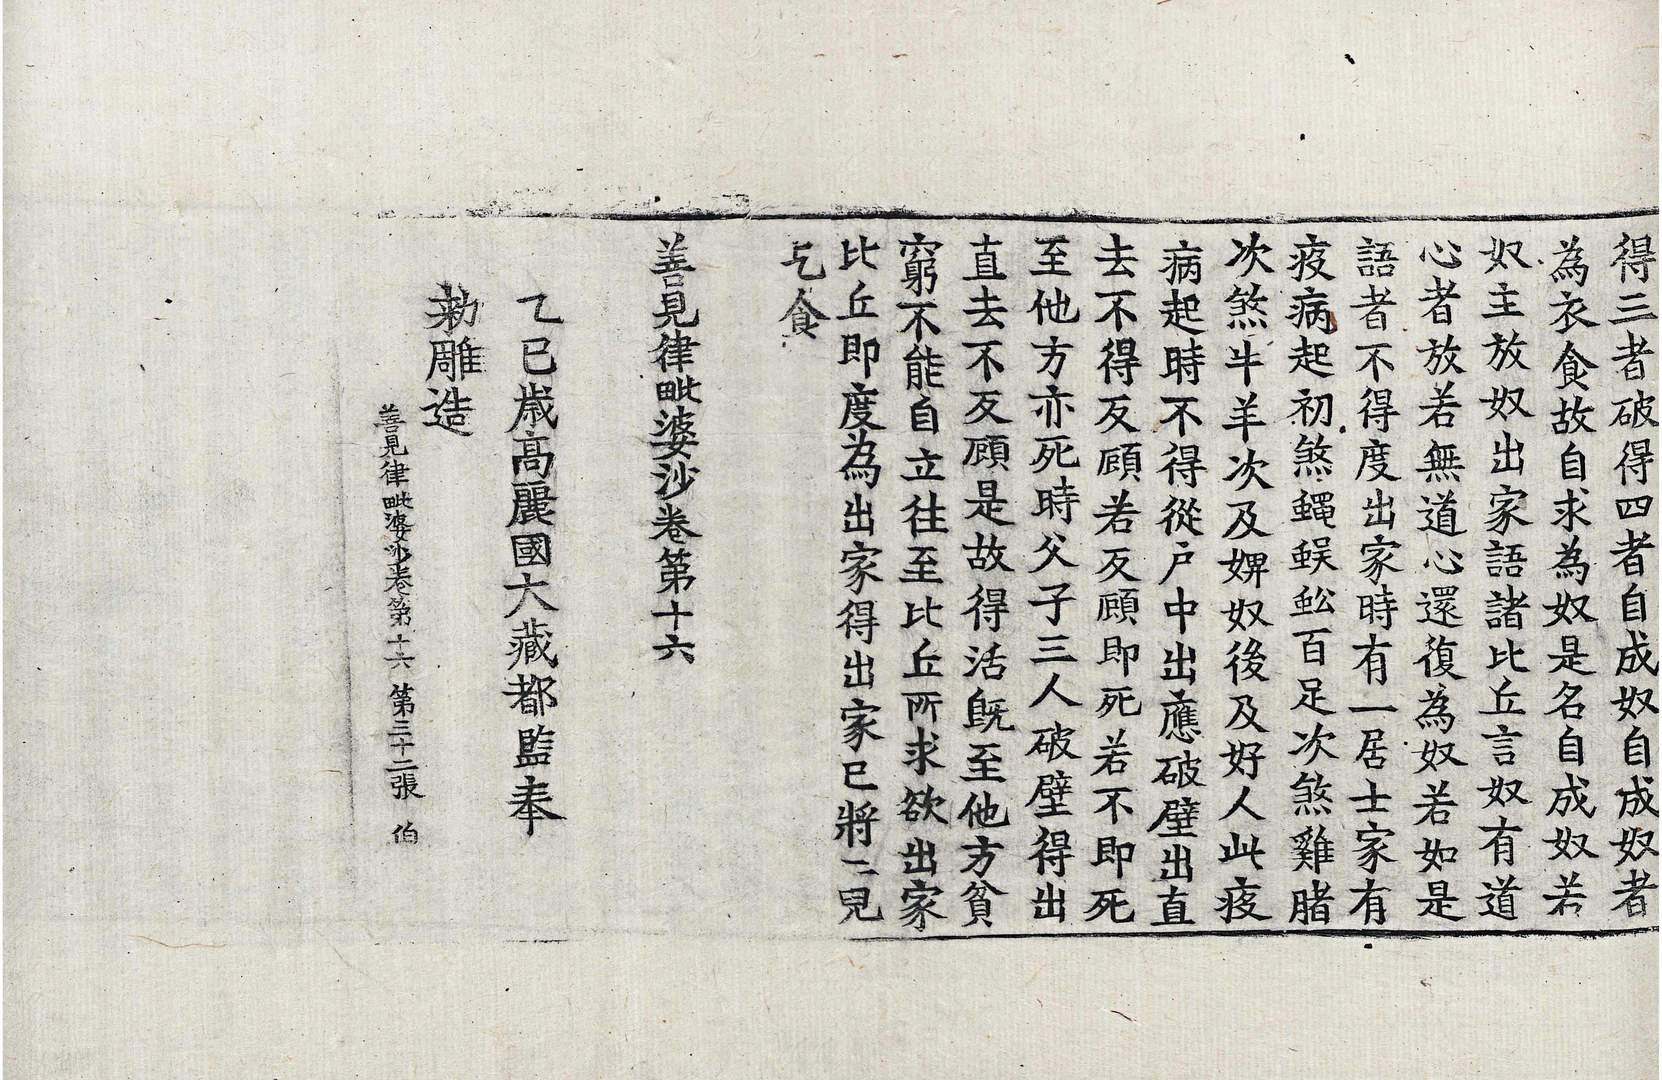 得三者破得四者自成奴自成奴者
為衣食故自求為奴是名自成奴若
奴主放奴出家語諸比丘言奴有道
心者放若無道心還復為奴若如是
語者不得度出家時有一居士家有
疫病起初煞蠅蜈蚣百足次煞雞賭
次煞牛羊次及婢奴後及好人此疫
病起時不得從戶中出應破壁出直
去不得反顧若反顧即死若不即死
至他方亦死時父子三人破壁得出
直去不反顧是故得活既至他方貧
窮不能自立往至比丘所求欲出家
比丘即度為出家得出家已將二兒
乞食
善見律毗婆沙卷第十六
乙巳歲高麗國大藏都監奉
勅雕造
善見律毗婆沙卷第十六 第三十二張 伯